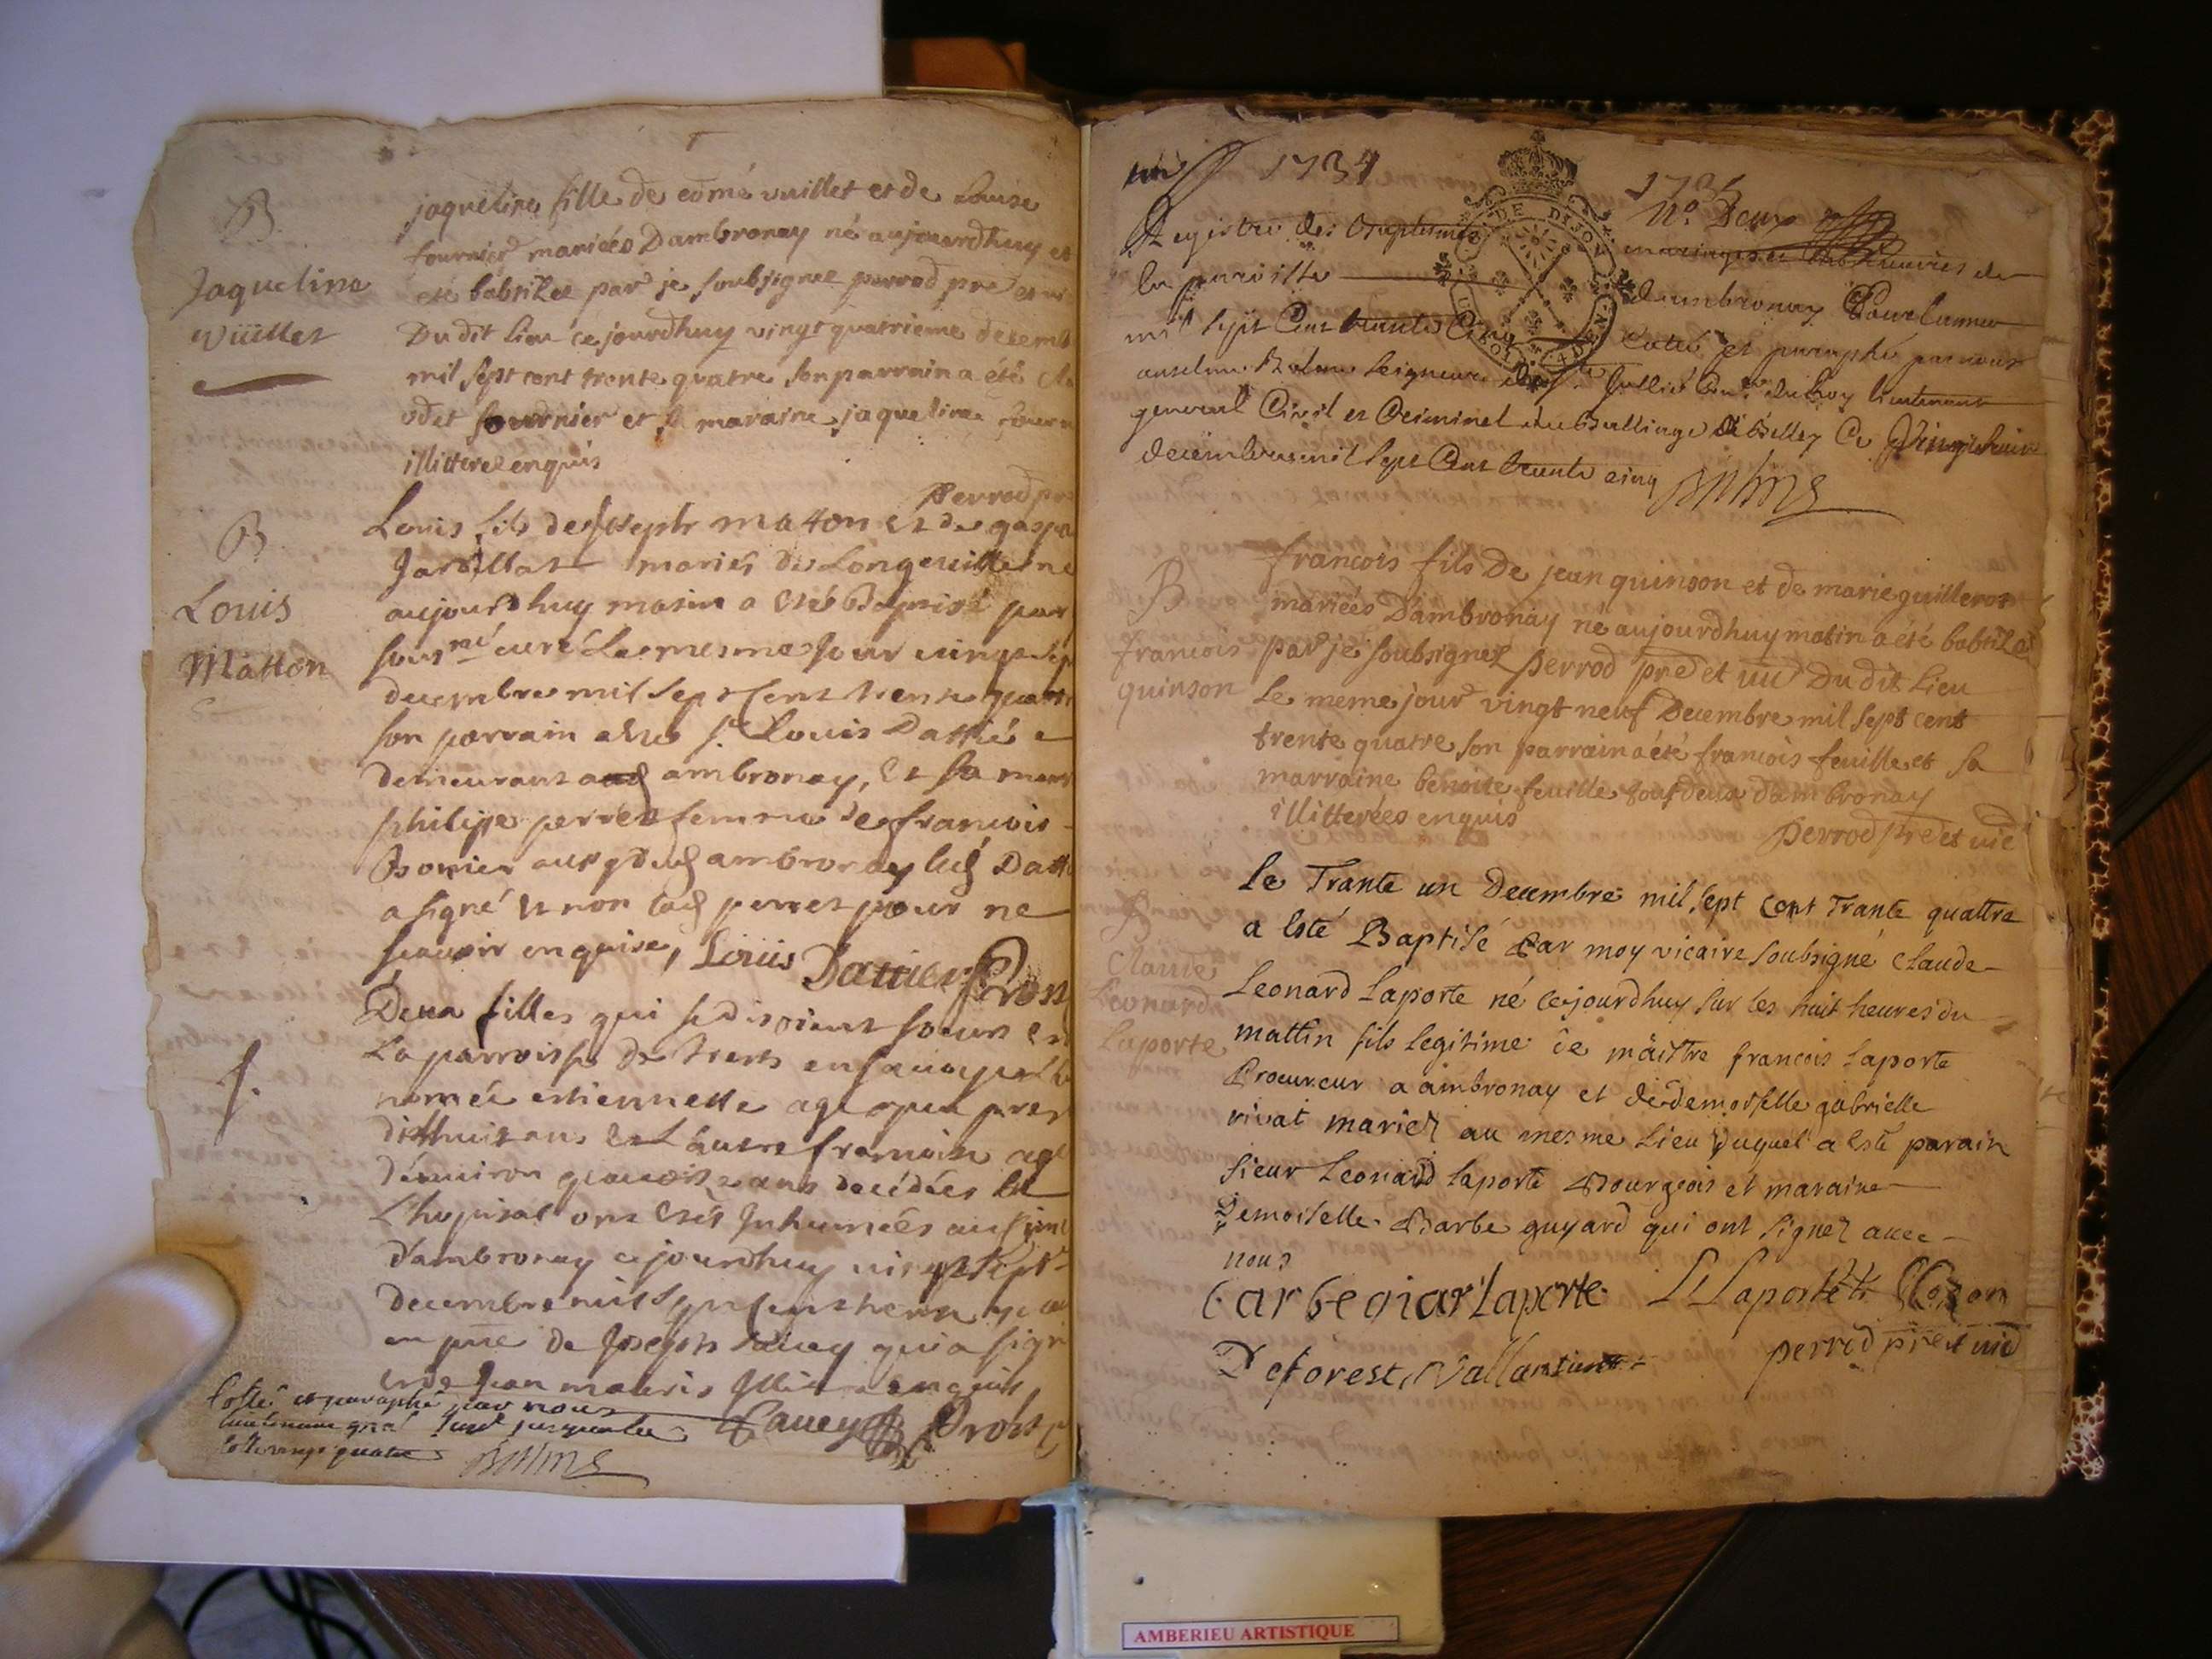 B
Jaqueline
Vüillet
jaqueline fille de comé vuillet et de Louise
fournier mariées Dambronay né aujourdhuy et
eté babtilee par je soubsignee perrod pre et vi
Du dit Lieu ce jourdhuy vingt quatrieme decemb
mil sept cent trente quatre son parrain a été
odet fournier et sa maraine jaqueline fourn
illitterez enquis
Perrod pre
B
Louis
Matton
Louis fils de Joseph matton et de gaspa
mariés de Longeville ne
aujourdhuy matin a esté Baptisé par
sousné curé Le mesme jour vingt sept
decembre mil sept cent trente quatre
son parrain a esté sr Louis Dattié
demeurant aud ambronay, et sa marr
philippe perret femme de francois
aussy dud ambronay led Datti
a signé et non lad perret pour ne
scavoir enquise, Louis Dattier Prost
S.
Deux filles qui se disoient soeurs et
La parroisse de en savoye
nomée estiennette agee a peu pres
dixhuit ans et L'autre francoise agé
d'environ quatorze ans decedées
L'hopital ont estés Inhumées au sime
d'ambronay cejourdhuy vingt sept
decembre mil sept cent trente quatr
en pnce de Joseph Lavey qui a signé
et de Jean mauris Illit enquis
Lavey Prost
Cotté et paraphé par nous
lieutenant gnal
cotte vingt quatre
1734
1735
No Deux
DE DIJON
Registre des Baptemes mariages et mortuaires de
la paroisse dambronay Pour lannee
mil sept Cent trente Cinq Cotté et paraphé par nous
anselme Balme Seigneur de Ste Jullie Coner du Roy lieutenant
general Civil et Criminel au Balliage de Belley Ce Vingt huit
decembre mil sept Cent trente cinq
B
francois
quinson
francois fils De jean quinson et de marie guillerot
mariées D'ambronay né aujourdhuy matin a été babtilee
par je soubsignez perrod pre et vic Du dit Lieu
Le meme jour vingt neuf Decembre mil sept cent
trente quatre son parrain a été francois feuillet sa
marraine benoite feuille tous deux d'ambronay
illitterées enquis
perrod pre et vic
B
Claude
Leonard
Laporte
Le Trante un Decembre mil sept cent Trante quattre
a Esté Baptisé Par moy vicaire soubsigné Claude
Leonard Laporte né cejourdhuy sur les huit heures du
mattin fils legitime de mäittre francois Laporte
Procureur a ambronay et de demoiselle gabrielle
rivat mariez au mesme Lieu Duquel a Esté parain
sieur Leonard Laporte Bourgeois et maraine
Demoiselle Barbe guyard qui ont signez avec
nous
Barbe giar Laporte L Laporte Cozon
Deforest, Vallansant
perrod pre et vic
AMBERIEU ARTISTIQUE